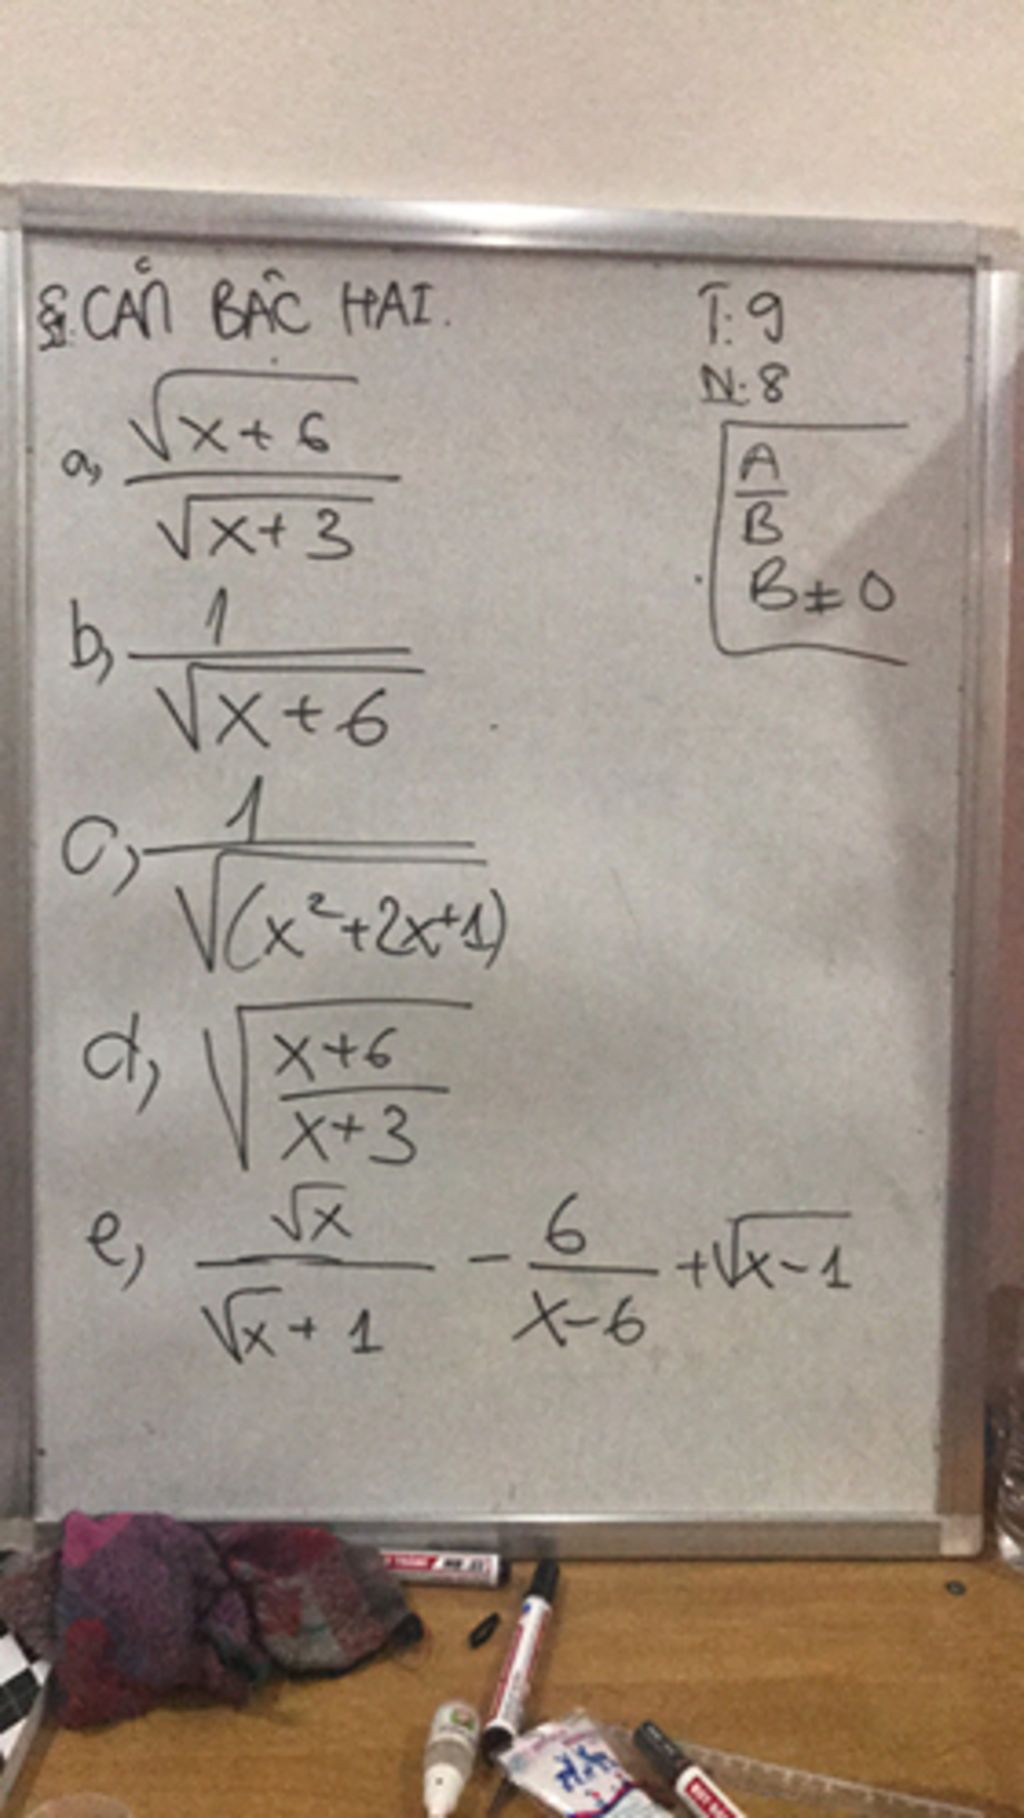 §1. CĂN BẬC HAI.
T: 9
N: 8
a, √(x+6) / √(x+3)
A/B
B ≠ 0
b, 1 / √(x+6)
c, 1 / √(x²+2x+1)
d, √((x+6)/(x+3))
e, √x / (√x + 1) - 6/(x-6) + √(x-1)